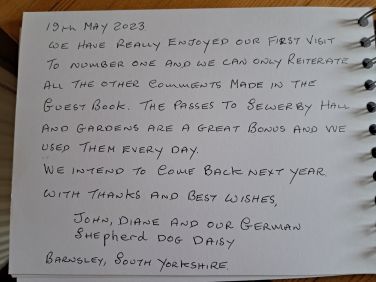 19TH MAY 2023.
WE HAVE REALLY ENJOYED OUR FIRST VISIT
TO NUMBER ONE AND WE CAN ONLY REITERATE
ALL THE OTHER COMMENTS MADE IN THE
GUEST BOOK. THE PASSES TO SEWERBY HALL
AND GARDENS ARE A GREAT BONUS AND WE
USED THEM EVERY DAY.
WE INTEND TO COME BACK NEXT YEAR.
WITH THANKS AND BEST WISHES,
JOHN, DIANE AND OUR GERMAN
SHEPHERD DOG DAISY
BARNSLEY, SOUTH YORKSHIRE.